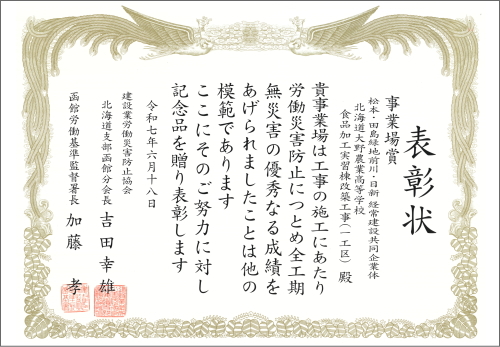 表彰状
事業場賞
松本・田島緑地前川・日新 経常建設共同企業体
北海道大野農業高等学校
食品加工実習棟改築工事(一工区) 殿
貴事業場は工事の施工にあたり
労働災害防止につとめ全工期
無災害の優秀なる成績を
あげられましたことは他の
模範であります
ここにそのご努力に対し
記念品を贈り表彰します
令和七年六月十八日
建設業労働災害防止協会
北海道支部函館分会長 吉田幸雄
函館労働基準監督署長 加藤 孝